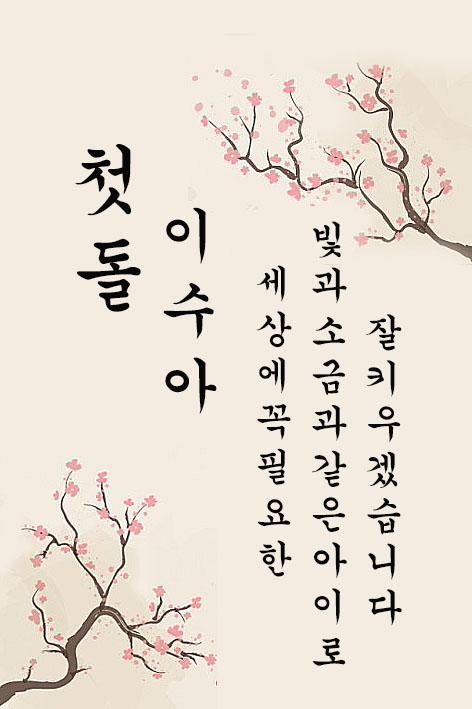 첫돌
이수아
세상에꼭필요한
빛과소금과같은아이로
잘키우겠습니다